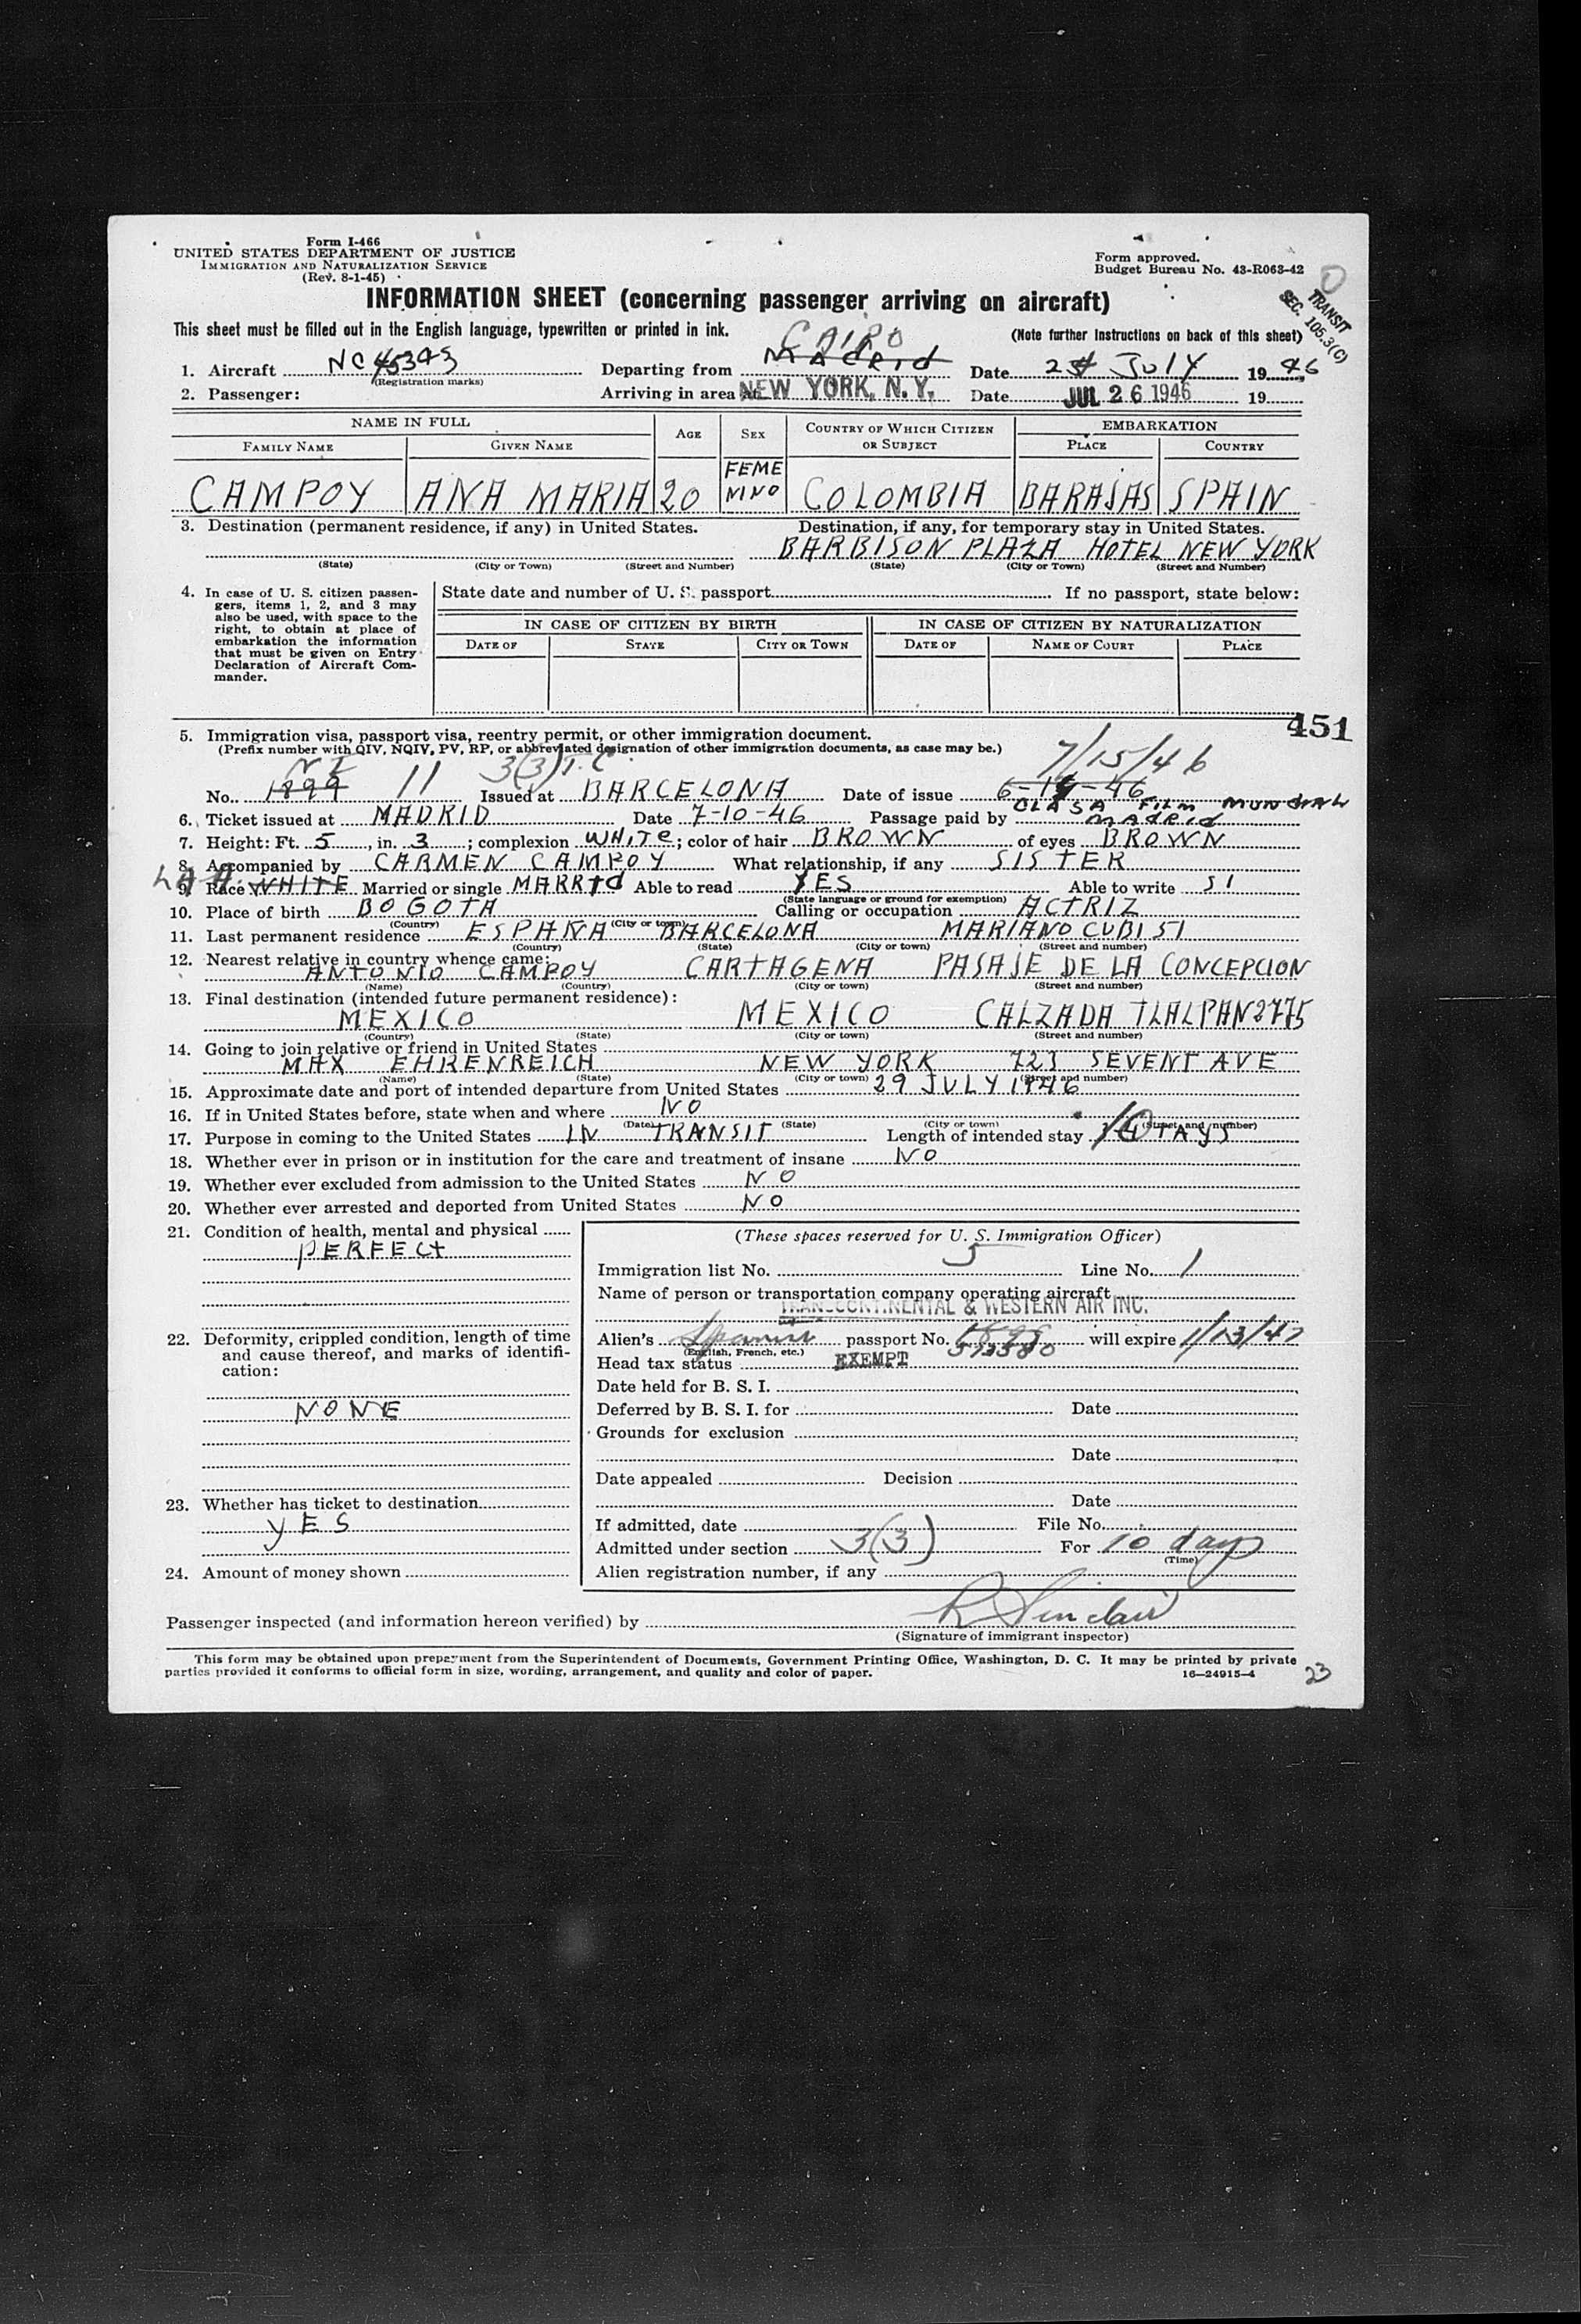 Form I-466
UNITED STATES DEPARTMENT OF JUSTICE
IMMIGRATION AND NATURALIZATION SERVICE
(Rev. 8-1-45)
Form approved.
Budget Bureau No. 43-R063-42
0
TRANSIT
SEC. 105.3(C)
INFORMATION SHEET (concerning passenger arriving on aircraft)
This sheet must be filled out in the English language, typewritten or printed in ink. (Note further instructions on back of this sheet)
CAIRO
1. Aircraft NC 45343 Departing from MADRID Date 24 JULY 1946
(Registration marks)
2. Passenger: Arriving in area at NEW YORK, N. Y. Date JUL 26 1946 19
NAME IN FULL AGE SEX COUNTRY OF WHICH CITIZEN OR SUBJECT EMBARKATION
FAMILY NAME GIVEN NAME PLACE COUNTRY
CAMPOY ANA MARIA 20 FEMENINO COLOMBIA BARAJAS SPAIN
3. Destination (permanent residence, if any) in United States. Destination, if any, for temporary stay in United States.
BARBISON PLAZA HOTEL NEW YORK
(State) (City or Town) (Street and Number) (State) (City or Town) (Street and Number)
4. In case of U. S. citizen passengers, items 1, 2, and 3 may also be used, with space to the right, to obtain at place of embarkation the information that must be given on Entry Declaration of Aircraft Commander.
State date and number of U. S. passport If no passport, state below:
IN CASE OF CITIZEN BY BIRTH IN CASE OF CITIZEN BY NATURALIZATION
DATE OF STATE CITY OR TOWN DATE OF NAME OF COURT PLACE
451
5. Immigration visa, passport visa, reentry permit, or other immigration document.
(Prefix number with QIV, NQIV, PV, RP, or abbreviated designation of other immigration documents, as case may be.)
3(3) T.C. 7/15/46
No. 1899 11 Issued at BARCELONA Date of issue 6-14-46
CLASA FILM MUNDIAL
6. Ticket issued at MADRID Date 7-10-46 Passage paid by MADRID
7. Height: Ft. 5, in. 3; complexion WHITE; color of hair BROWN of eyes BROWN
8. Accompanied by CARMEN CAMPOY What relationship, if any SISTER
9. Race WHITE Married or single MARRID Able to read YES Able to write SI
(State language or ground for exemption)
10. Place of birth BOGOTA Calling or occupation ACTRIZ
(Country) (City or town)
11. Last permanent residence ESPAÑA BARCELONA MARIANO CUBI 51
(Country) (State) (City or town) (Street and number)
12. Nearest relative in country whence came:
ANTONIO CAMPOY CARTAGENA PASAJE DE LA CONCEPCION
(Name) (Country) (City or town) (Street and number)
13. Final destination (intended future permanent residence):
MEXICO MEXICO CALZADA TLALPAN 2775
(Country) (State) (City or town) (Street and number)
14. Going to join relative or friend in United States
MAX EHRENREICH NEW YORK 723 SEVENT AVE
(Name) (State) (City or town) (Street and number)
15. Approximate date and port of intended departure from United States 29 JULY 1946
16. If in United States before, state when and where NO
(Date) (State) (City or town) (Street and number)
17. Purpose in coming to the United States IN TRANSIT Length of intended stay 10 TAYS
18. Whether ever in prison or in institution for the care and treatment of insane NO
19. Whether ever excluded from admission to the United States NO
20. Whether ever arrested and deported from United States NO
21. Condition of health, mental and physical
PERFECT
22. Deformity, crippled condition, length of time and cause thereof, and marks of identification:
NONE
23. Whether has ticket to destination
YES
24. Amount of money shown
(These spaces reserved for U. S. Immigration Officer)
Immigration list No. 5 Line No. 1
Name of person or transportation company operating aircraft
TRANSCONTINENTAL & WESTERN AIR INC.
Alien's Spanish passport No. will expire 1/13/47
(English, French, etc.)
Head tax status EXEMPT
Date held for B. S. I.
Deferred by B. S. I. for Date
Grounds for exclusion
Date
Date appealed Decision
Date
If admitted, date File No.
Admitted under section 3(3) For 10 days
(Time)
Alien registration number, if any
Passenger inspected (and information hereon verified) by R Sinclair
(Signature of immigrant inspector)
This form may be obtained upon prepayment from the Superintendent of Documents, Government Printing Office, Washington, D. C. It may be printed by private
parties provided it conforms to official form in size, wording, arrangement, and quality and color of paper. 16—24915-4
23